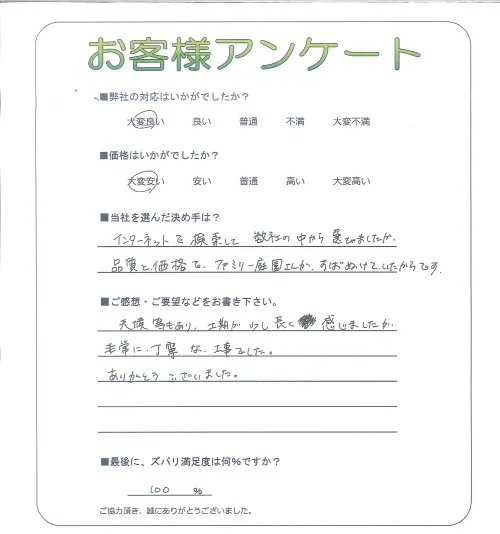 お客様アンケート
■弊社の対応はいかがでしたか?
大変良い 良い 普通 不満 大変不満
■価格はいかがでしたか?
大変安い 安い 普通 高い 大変高い
■当社を選んだ決め手は?
インターネットで検索して 数社の中から選びましたが、
品質と価格で、ファミリー庭園さんが、ずばぬけていたからです。
■ご感想・ご要望などをお書き下さい。
天候等もあり、工期が少し長く 感じましたが、
非常に丁寧な工事でした。
ありがとうございました。
■最後に、ズバリ満足度は何%ですか?
100 %
ご協力頂き、誠にありがとうございました。